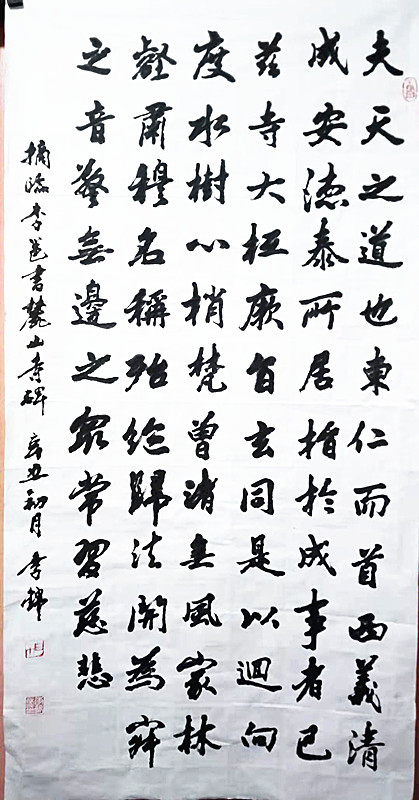 夫天之道也東仁而首西義清
成安德泰所居指於成事者已
茲寺大柢厥旨玄同是以迴向
度水樹心梢梵曾渚無風家林
壑肅穆名稱殆絕歸法開為
之音警無邊之眾常習慈悲
摘臨李邕書麓山寺碑 辛丑初月 李錦